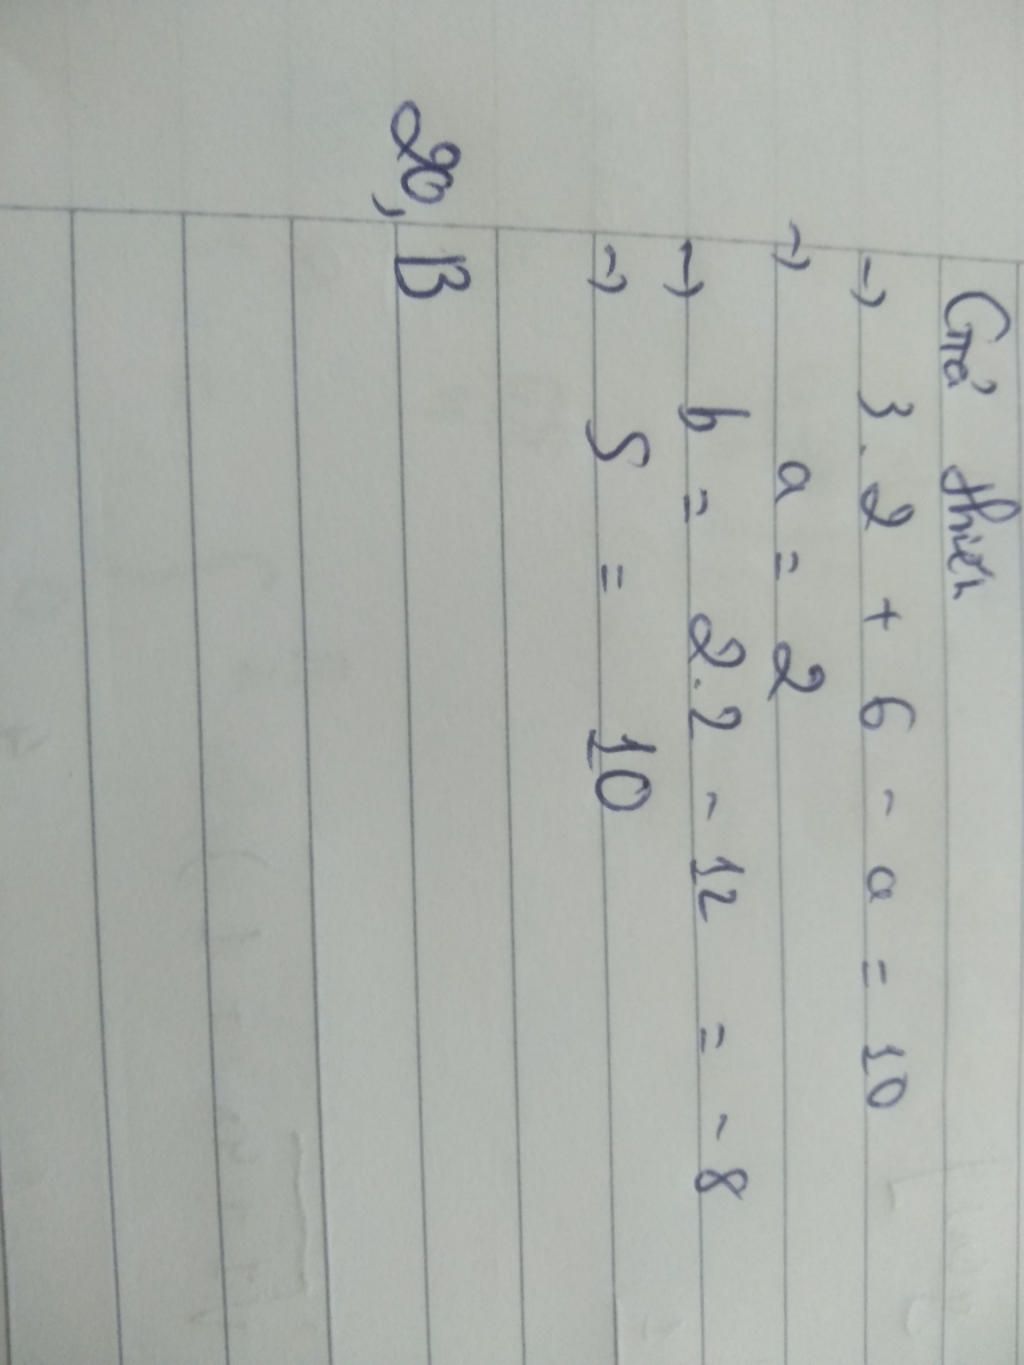 Giả thiết
→ 3.2 + 6 - a = 10
→ a = 2
→ b = 2.2 - 12 = -8
→ S = 10
20, B